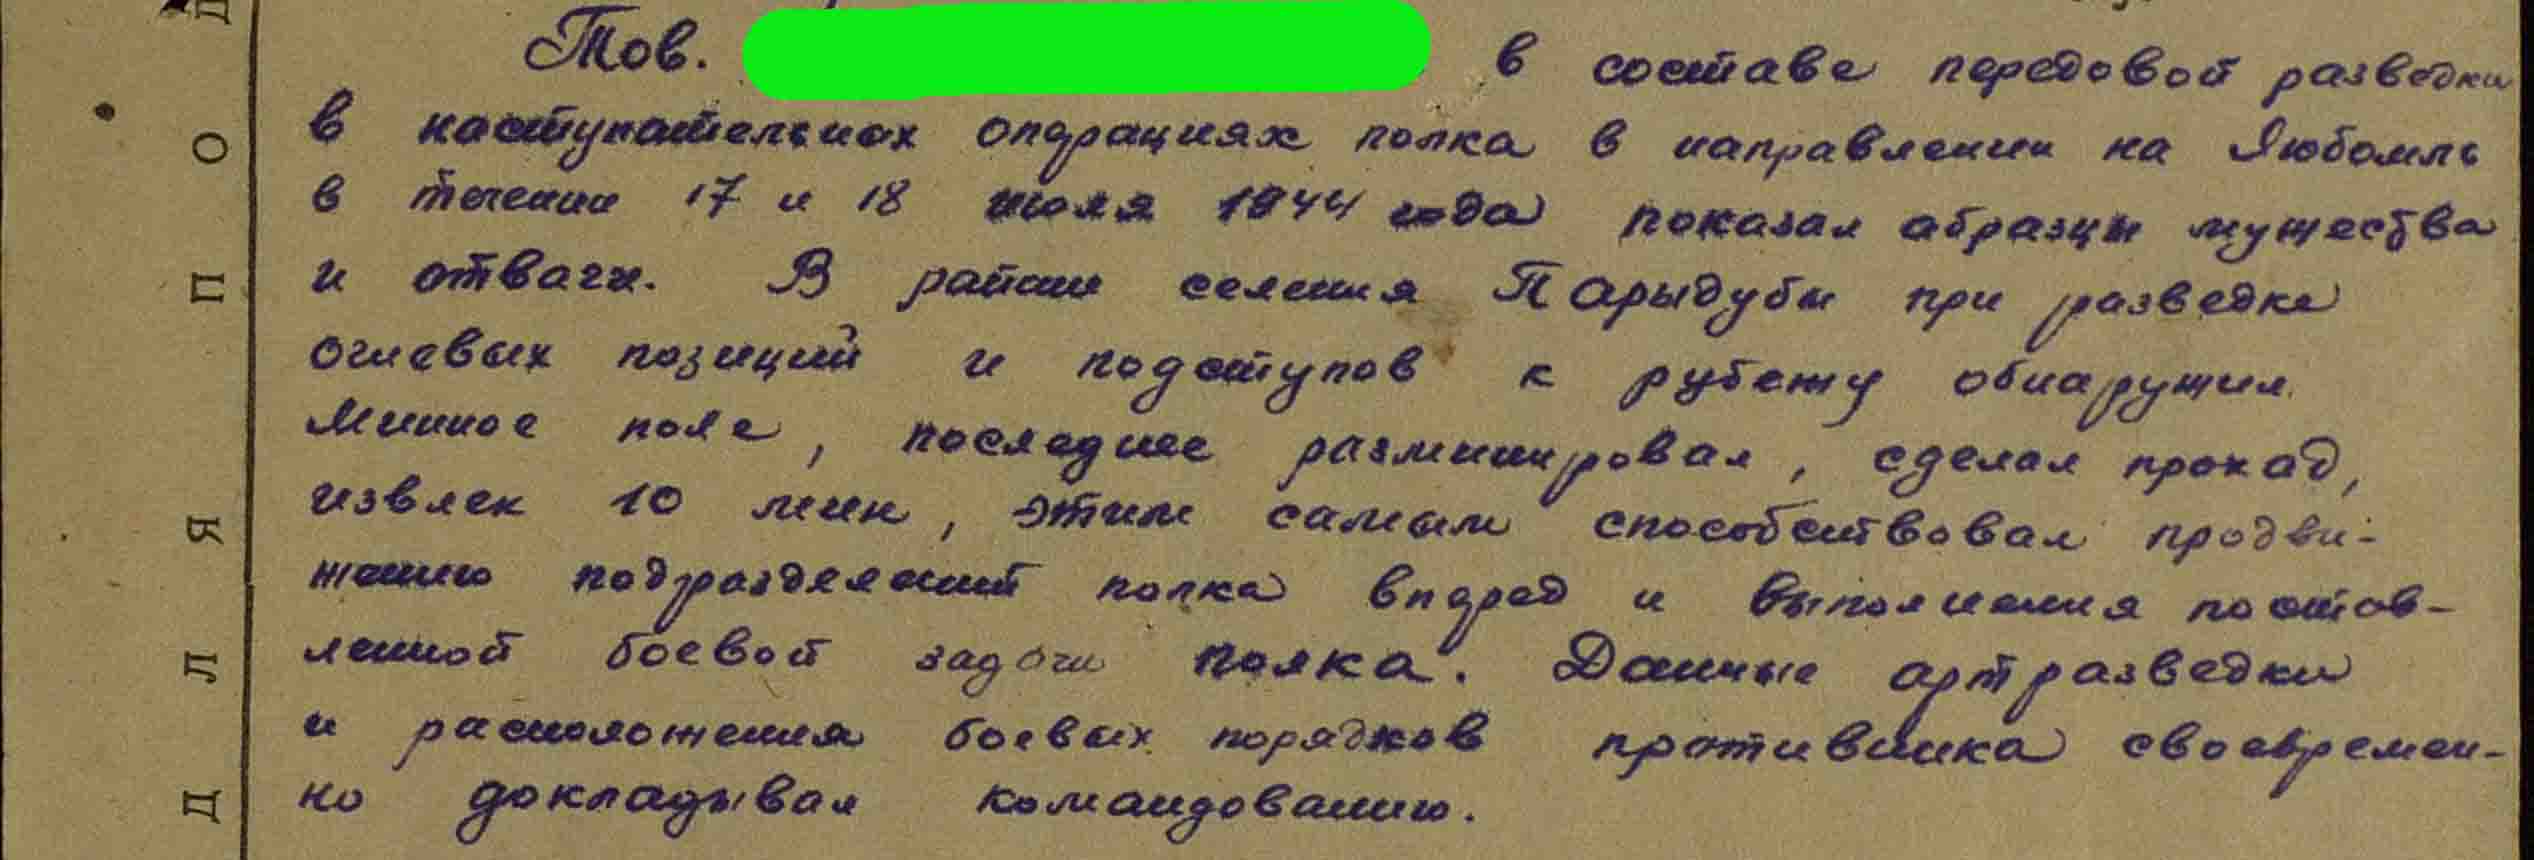 Тов. в составе передовой разведки
в наступательных операциях полка в направлении на Любомль
в течении 17 и 18 июля 1944 года показал абразцы мужества
и отваги. В районе селения Парыдубы при разведке
огневых позиций и подступов к рубежу обнаружил
минное поле, последнее разминировал, сделал проход,
извлек 10 мин, этим самым способствовал продви-
жению подразделений полка вперед и выполнения постав-
ленной боевой задачи полка. Данные артразведки
и расположения боевых порядков противника своевремен-
но докладывал командованию.
Д Л Я П О Д